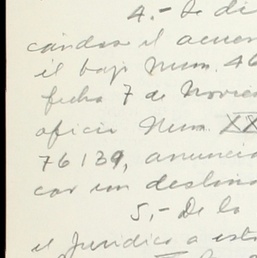 4.- Se di
cándose el acuer
el bajo Num. 46
fecha 7 de Novie
oficio Num. XX
76139, anuncia
car un destina
5,- De la
el Jurídico a esta